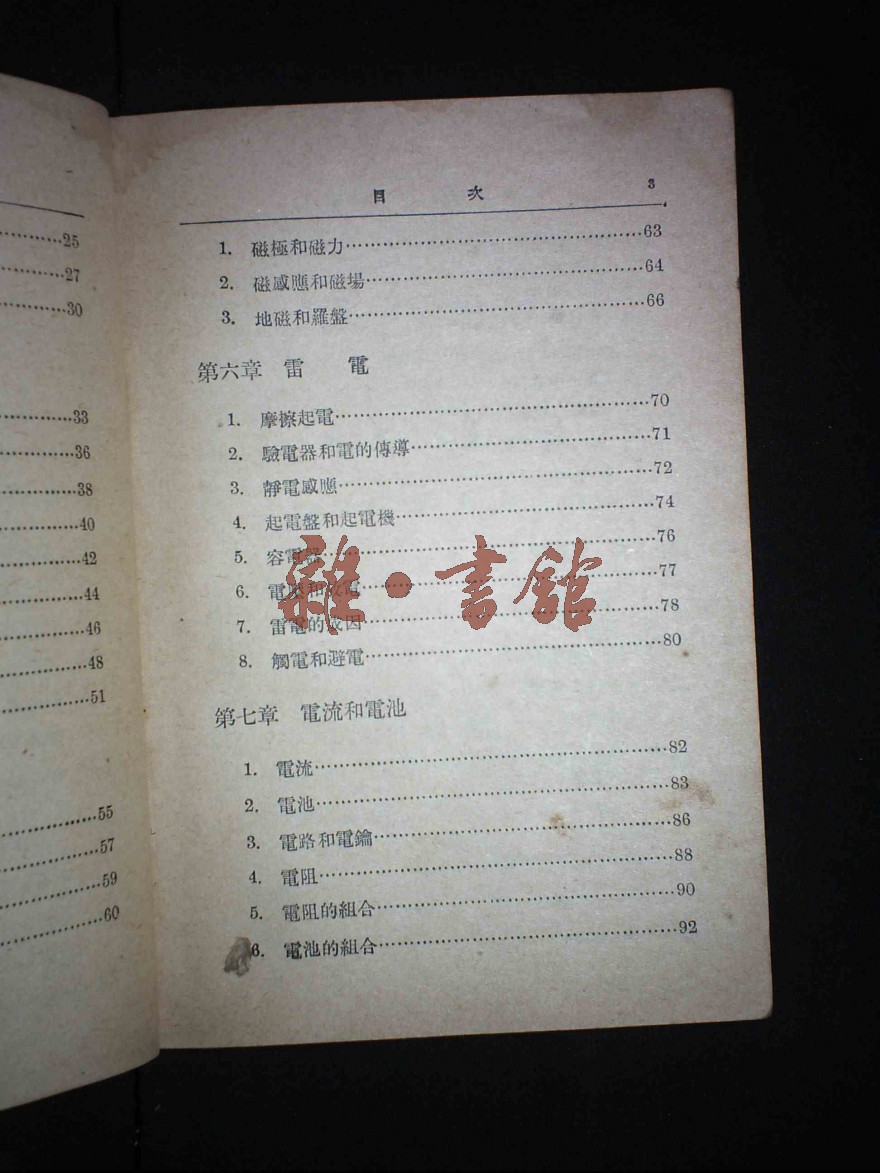 25
27
30
33
36
38
40
42
44
46
48
51
55
57
59
60
目 次 3
1. 磁極和磁力……63
2. 磁感應和磁場……64
3. 地磁和羅盤……66
第六章 雷 電
1. 摩擦起電……70
2. 驗電器和電的傳導……71
3. 靜電感應……72
4. 起電盤和起電機……74
5. 容電器……76
6. 電壓和放電……77
7. 雷電的成因……78
8. 觸電和避電……80
雜·書館
第七章 電流和電池
1. 電流……82
2. 電池……83
3. 電路和電鑰……86
4. 電阻……88
5. 電阻的組合……90
6. 電池的組合……92